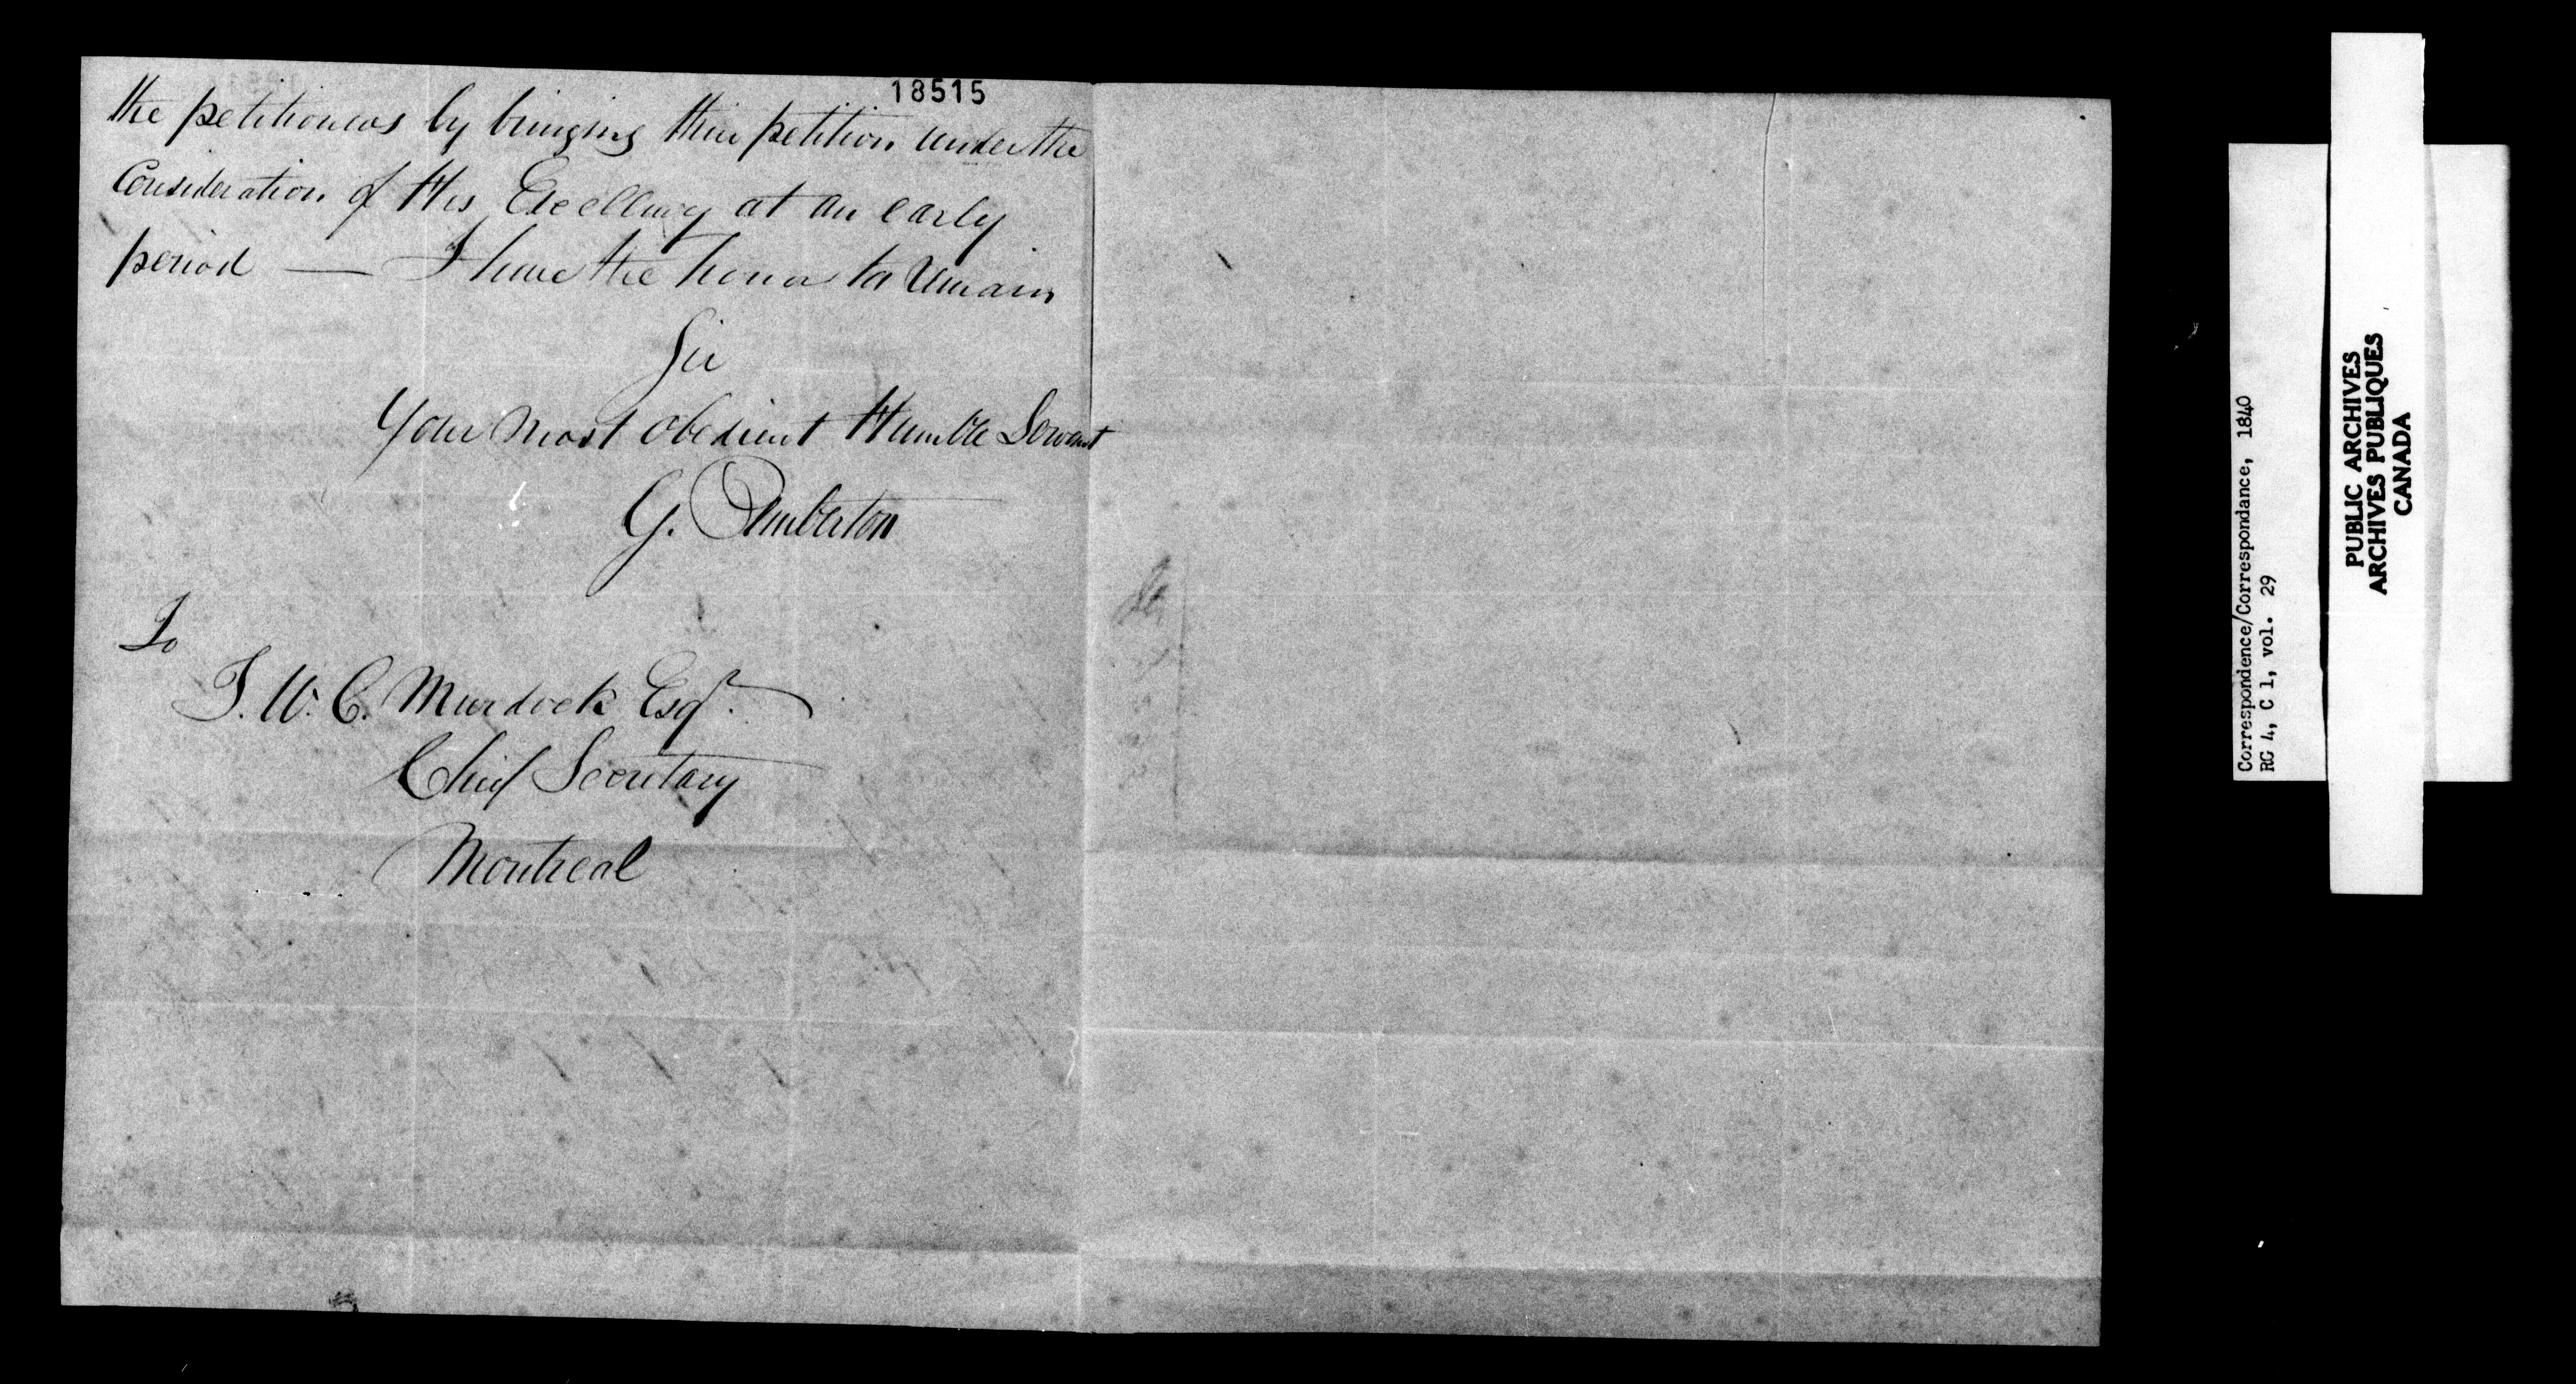 18515
the petitioners by bringing their petition under the
Consideration of His Excellency at an early
period — I have the honor to remain
Sir
Your most obedient Humble Servant
G. Pemberton
To
T. W. C. Murdock Esqr.
Chief Secretary
Montreal
Correspondence/Correspondance, 1840
RG 4, C 1, vol. 29
PUBLIC ARCHIVES
ARCHIVES PUBLIQUES
CANADA